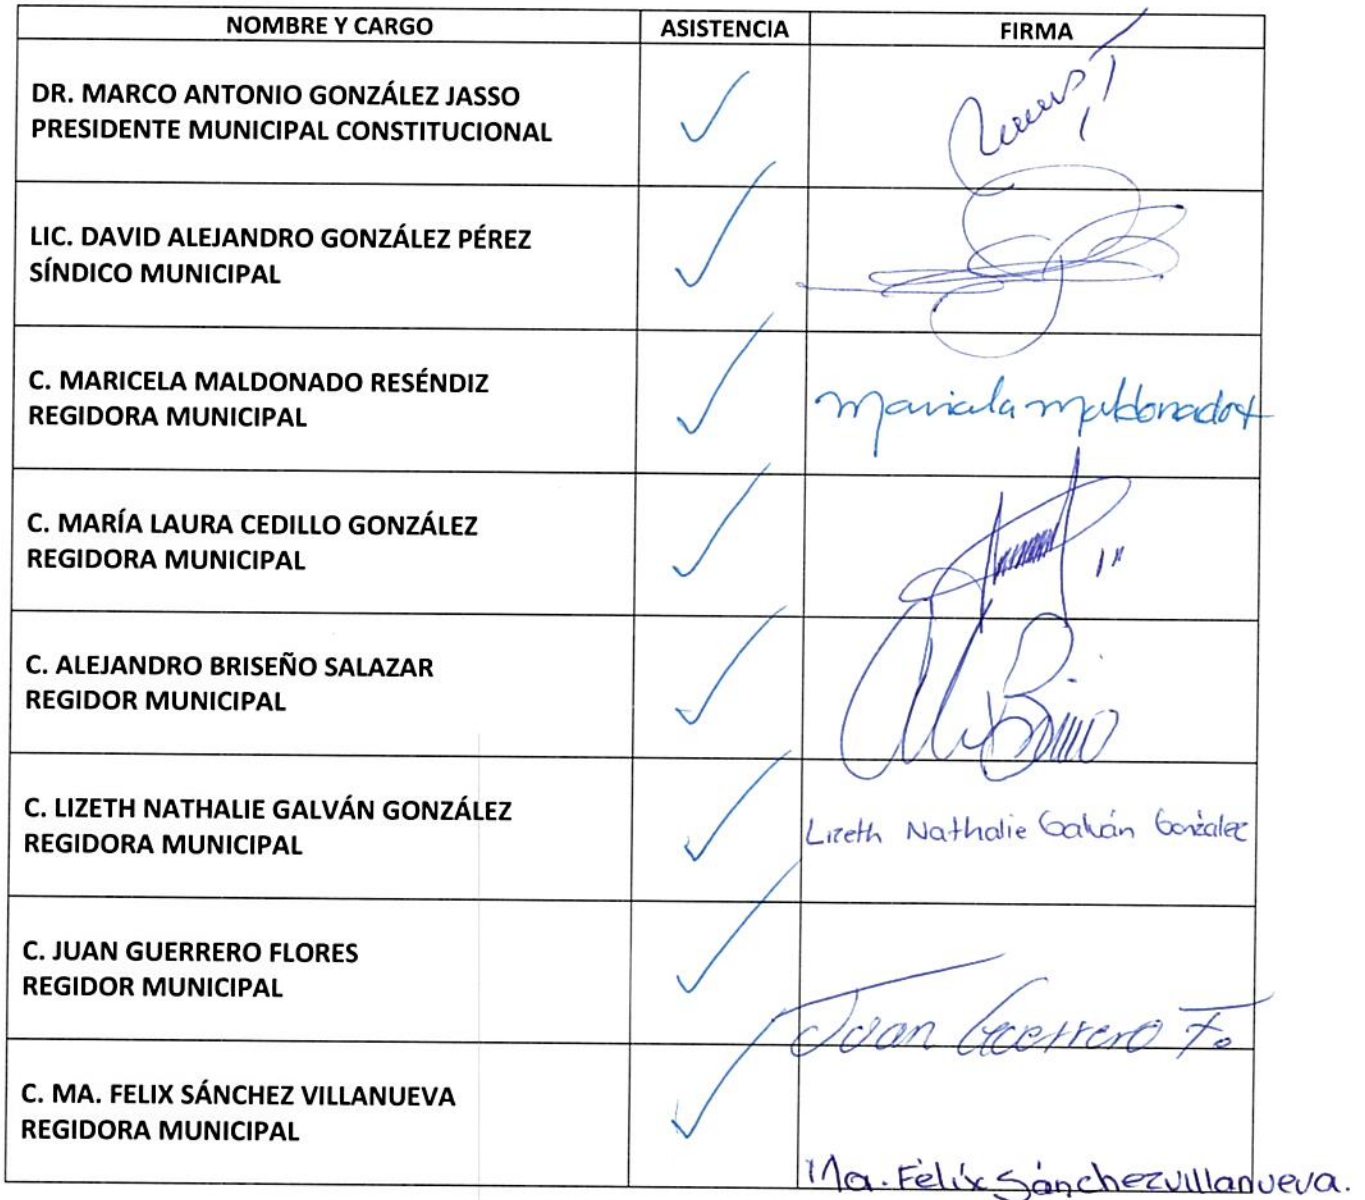 NOMBRE Y CARGO ASISTENCIA FIRMA
DR. MARCO ANTONIO GONZÁLEZ JASSO
PRESIDENTE MUNICIPAL CONSTITUCIONAL
LIC. DAVID ALEJANDRO GONZÁLEZ PÉREZ
SÍNDICO MUNICIPAL
C. MARICELA MALDONADO RESÉNDIZ
REGIDORA MUNICIPAL
maricela maldonado
C. MARÍA LAURA CEDILLO GONZÁLEZ
REGIDORA MUNICIPAL
C. ALEJANDRO BRISEÑO SALAZAR
REGIDOR MUNICIPAL
C. LIZETH NATHALIE GALVÁN GONZÁLEZ
REGIDORA MUNICIPAL
Lizeth Nathalie Galván González
C. JUAN GUERRERO FLORES
REGIDOR MUNICIPAL
Juan Guerrero F.
C. MA. FELIX SÁNCHEZ VILLANUEVA
REGIDORA MUNICIPAL
Ma. Félix Sánchez villanueva.